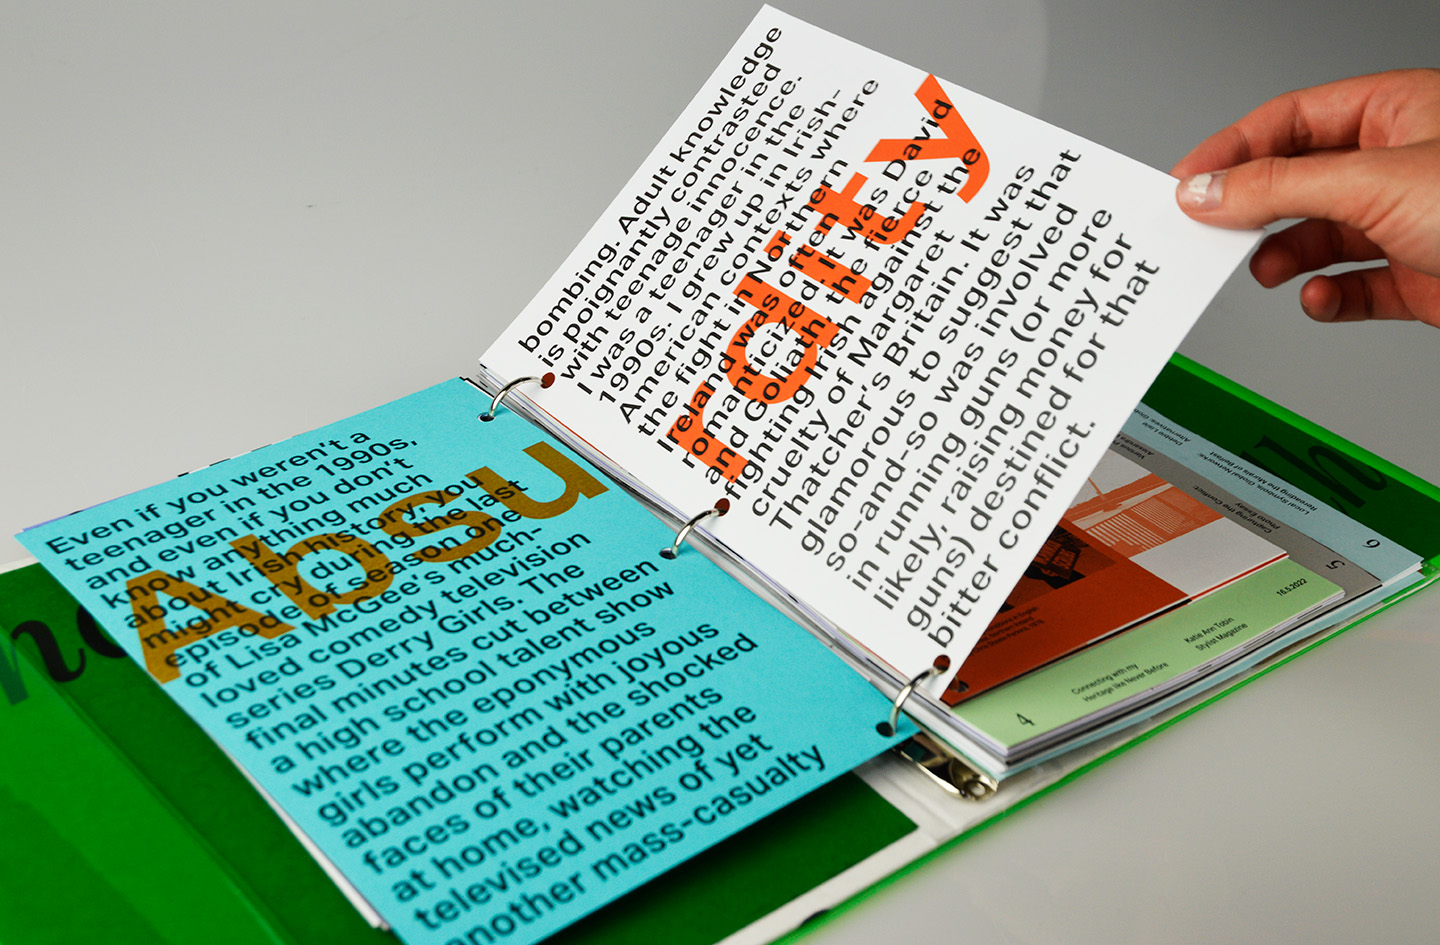 Even if you weren't a
teenager in the 1990s,
and even if you don't
know anything much
about Irish history, you
might cry during the last
episode of season one
of Lisa McGee's much-
loved comedy television
series Derry Girls. The
final minutes cut between
a high school talent show
where the eponymous
girls perform with joyous
abandon and the shocked
faces of their parents
at home, watching the
televised news of yet
another mass-casualty
Absu
bombing. Adult knowledge
is poignantly contrasted
with teenage innocence.
I was a teenager in the
1990s. I grew up in Irish-
American contexts where
the fight in Northern
Ireland was often
romanticized. It was David
and Goliath, the fierce
fighting Irish against the
cruelty of Margaret
Thatcher's Britain. It was
glamorous to suggest that
so-and-so was involved
in running guns (or more
likely, raising money for
guns) destined for that
bitter conflict.
rdity
4
Connecting with my
Heritage like Never Before
Katie Ann Tobin
Stylist Magazine
16.5.2022
5
Capturing the Conflict:
Photo Essay
6
Local Symbols, Global Networks:
Rereading the Murals of Belfast
Debbie Lisle